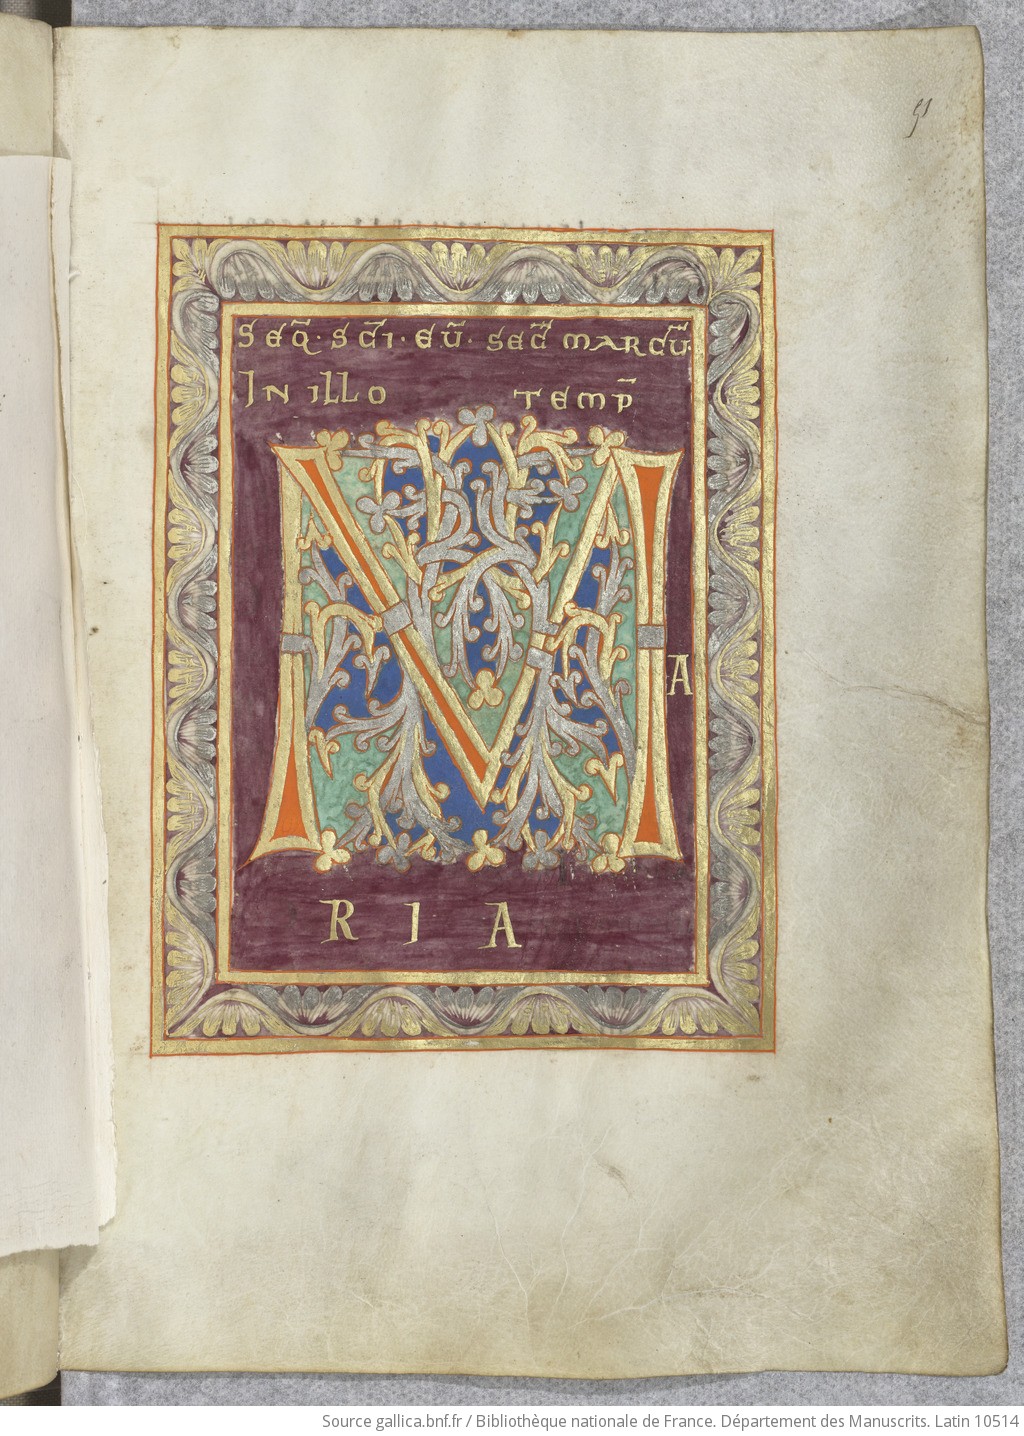 51
SEQ̃·SC̃I·EŨ·SEC̃ MARCŨ·
IN ILLO TEMP̃
M
A
R I A
Source gallica.bnf.fr / Bibliothèque nationale de France. Département des Manuscrits. Latin 10514